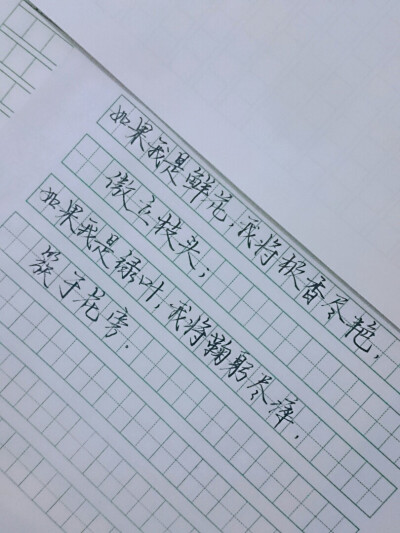 如果我是鲜花,我将极香尽艳,
傲立枝头;
如果我是绿叶,我将鞠躬尽瘁,
簇于花旁.